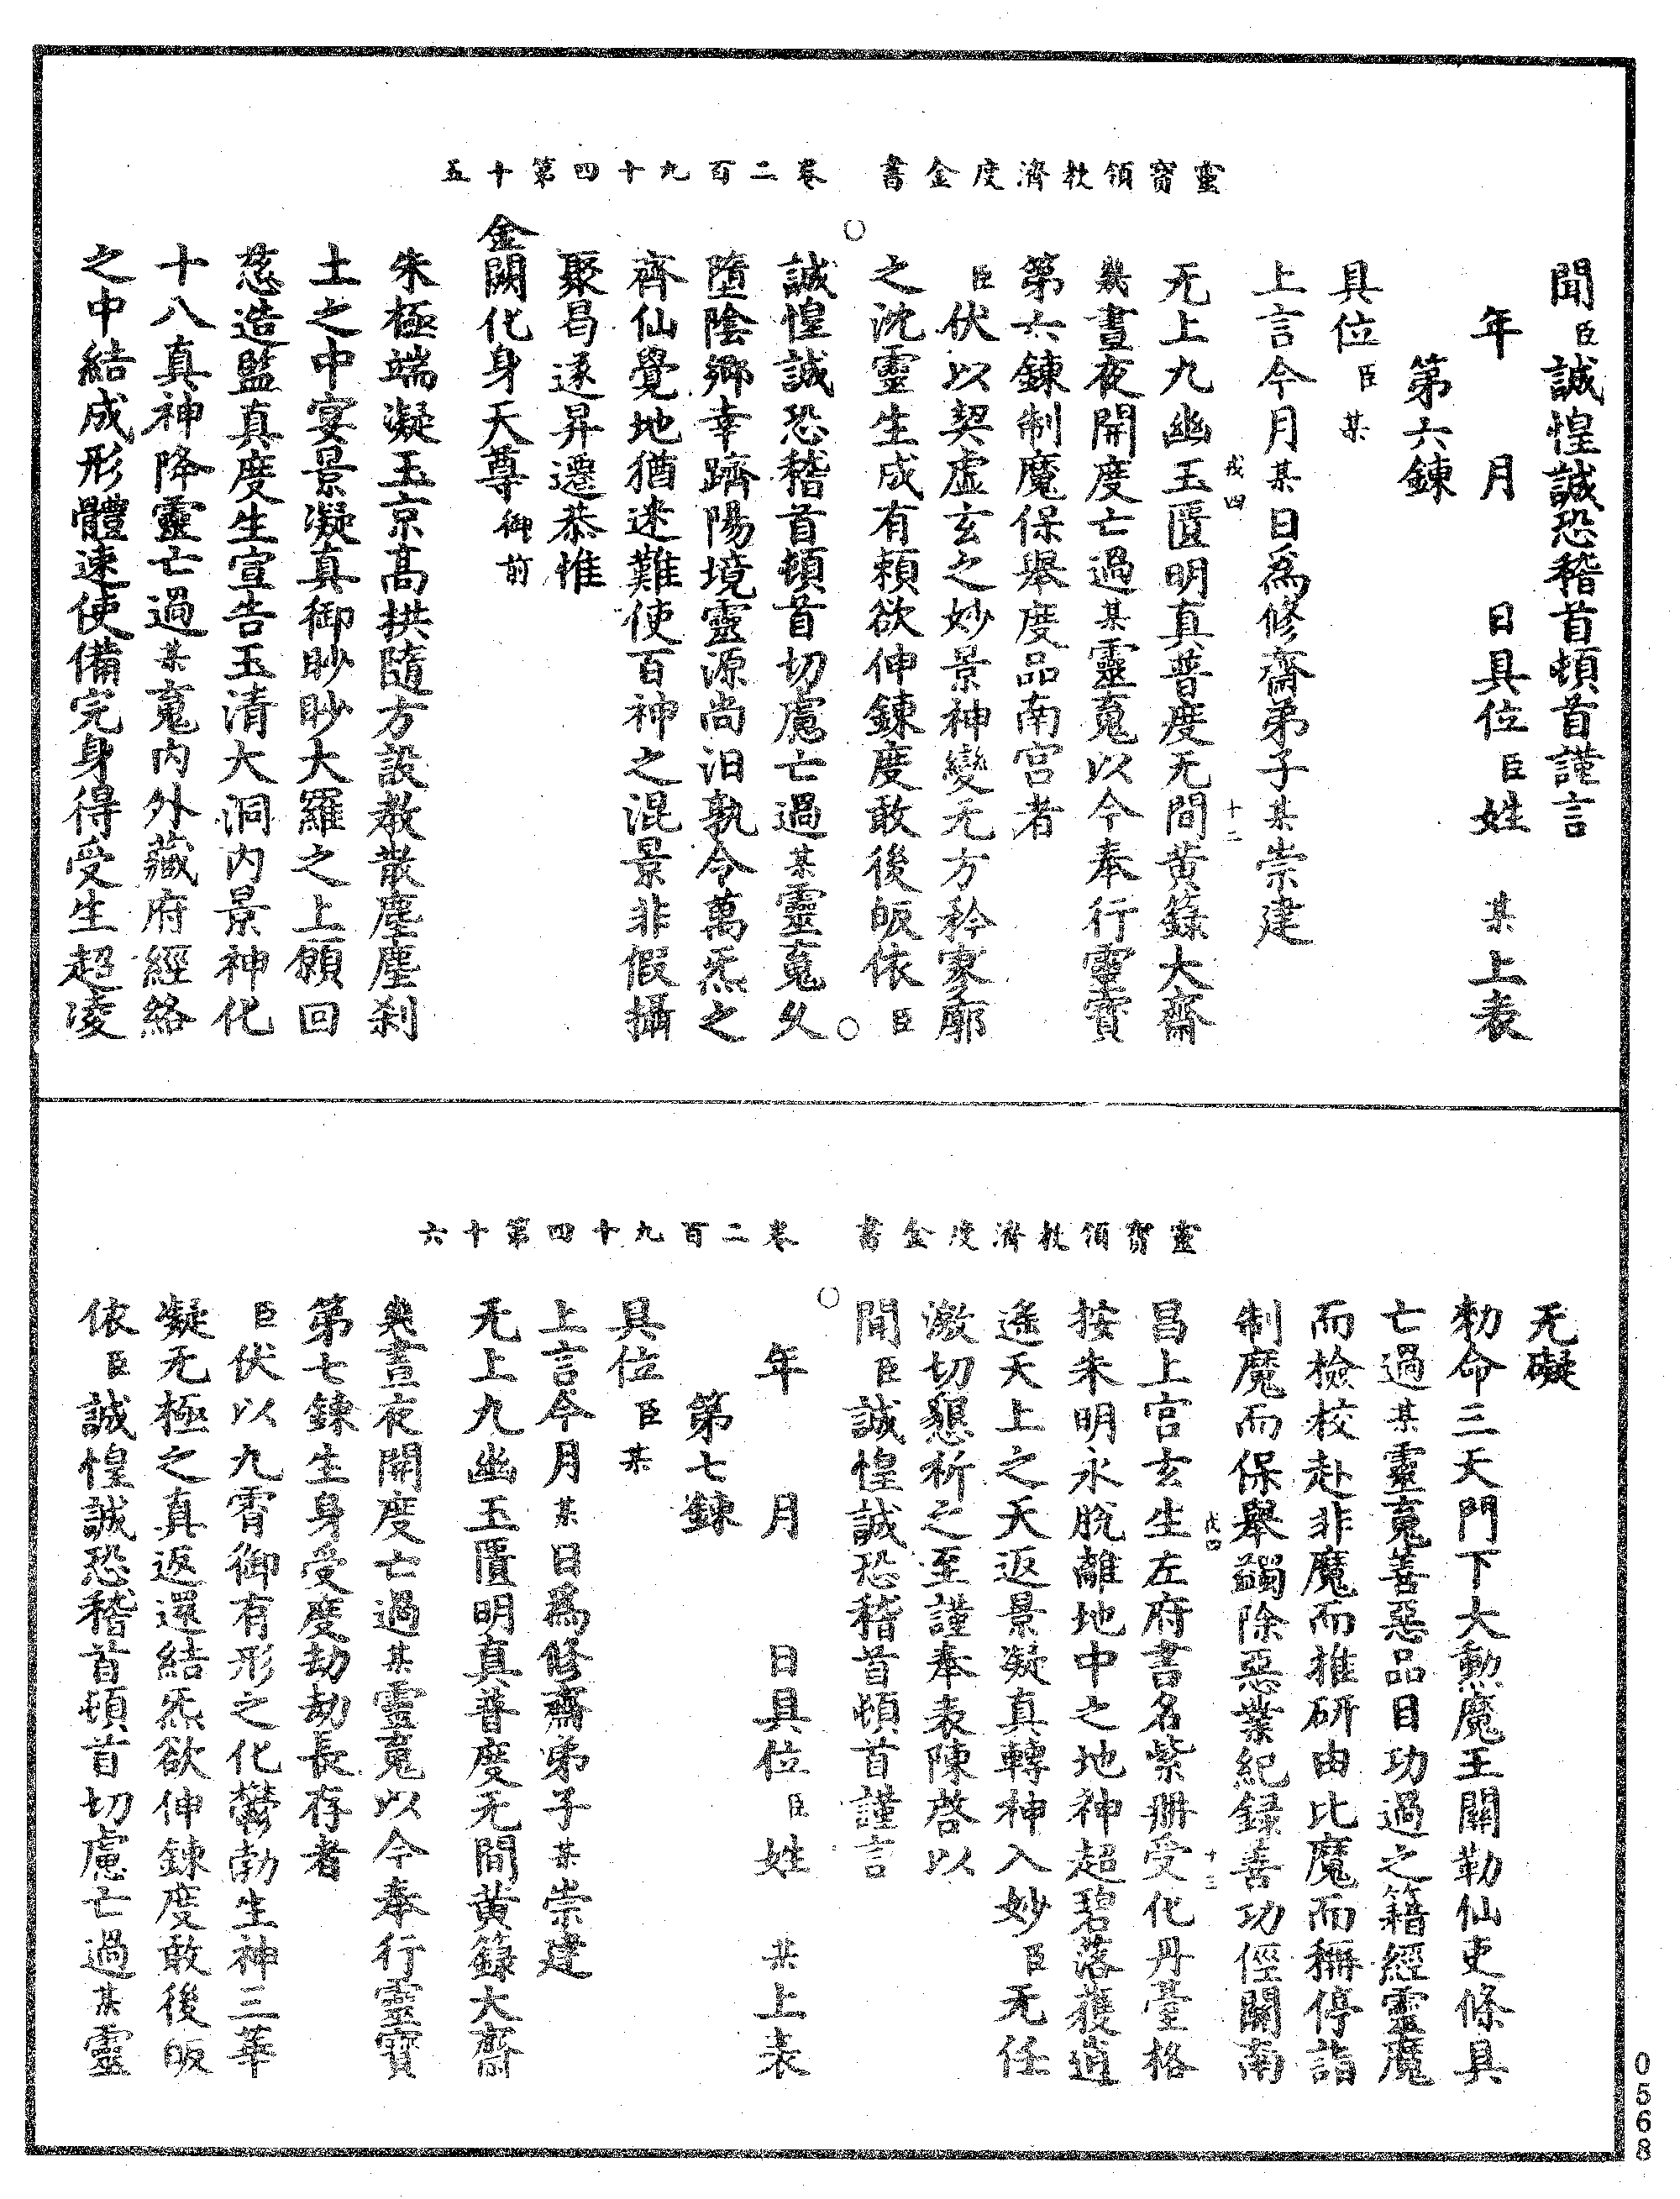 靈寶領教濟度金書　卷二百九十四第十五
聞臣誠惶誠恐稽首頓首謹言
年　月　日具位臣姓　某上表
第六鍊
具位臣某
上言今月某日爲修齋弟子某崇建
戎四　十二
无上九幽玉匱明真普度无間黄籙大齋
幾晝夜開度亡過某靈䰟以今奉行靈寶
第六鍊制魔保舉度品南宫者
臣伏以契虚玄之妙景神變无方矜寥廓
之沈靈生成有賴欲伸鍊度敢後皈依臣
誠惶誠恐稽首頓首切慮亡過某靈䰟久
墮陰鄉幸躋陽境靈源尚汨孰令萬炁之
齊仙覺地猶迷難使百神之混景非假攝
聚曷遂昇遷恭惟
金闕化身天尊御前
朱極端凝玉京高拱隨方設教散塵塵刹
土之中宴景凝真御眇眇大羅之上願回
慈造監真度生宣告玉清大洞内景神化
十八真神降靈亡過某䰟内外藏府經絡
之中結成形體速使備完身得受生超凌
靈寶領教濟度金書　卷二百九十四第十六
无礙
勑命三天門下大勳魔王關勒仙吏條具
亡過某靈䰟善惡品目功過之籍經靈魔
而檢校赴非魔而推研由比魔而稱停詣
制魔而保舉蠲除惡業紀録善功徑關南
戎四　十三
昌上宫玄生左府書名紫册受化丹臺格
按朱明永脱離地中之地神超碧落獲逍
遥天上之天返景凝真轉神入妙臣无任
激切懇祈之至謹奉表陳啓以
聞臣誠惶誠恐稽首頓首謹言
年　月　日具位臣姓　某上表
第七鍊
具位臣某
上言今月某日爲修齋弟子某崇建
无上九幽玉匱明真普度无間黄籙大齋
幾晝夜開度亡過某靈䰟以今奉行靈寶
第七鍊生身受度劫劫長存者
臣伏以九霄御有形之化鬱勃生神三華
凝无極之真返還結炁欲伸鍊度敢後皈
依臣誠惶誠恐稽首頓首切慮亡過某靈
0568